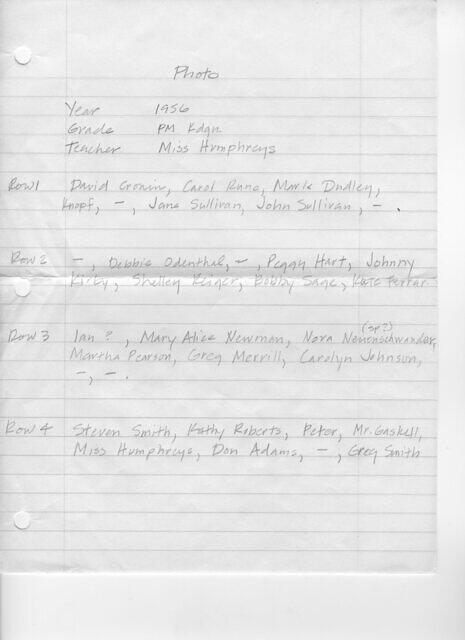 Photo
Year 1956
Grade PM Kdgn.
Teacher Miss Humphreys
Row 1 David Cronin, Carol Rune, Mark Dudley,
Knopf, –, Jane Sullivan, John Sullivan, –.
Row 2 –, Debbie Odenthal, –, Peggy Hart, Johnny
Kirby, Shelley Reiger, Bobby Sage, Kate Ferrar
Row 3 Ian ?, Mary Alice Newman, Nora Nenenschwander, (sp?)
Martha Pearson, Greg Merrill, Carolyn Johnson,
–, –.
Row 4 Steven Smith, Kathy Roberts, Peter, Mr. Gaskell,
Miss Humphreys, Don Adams, –, Greg Smith